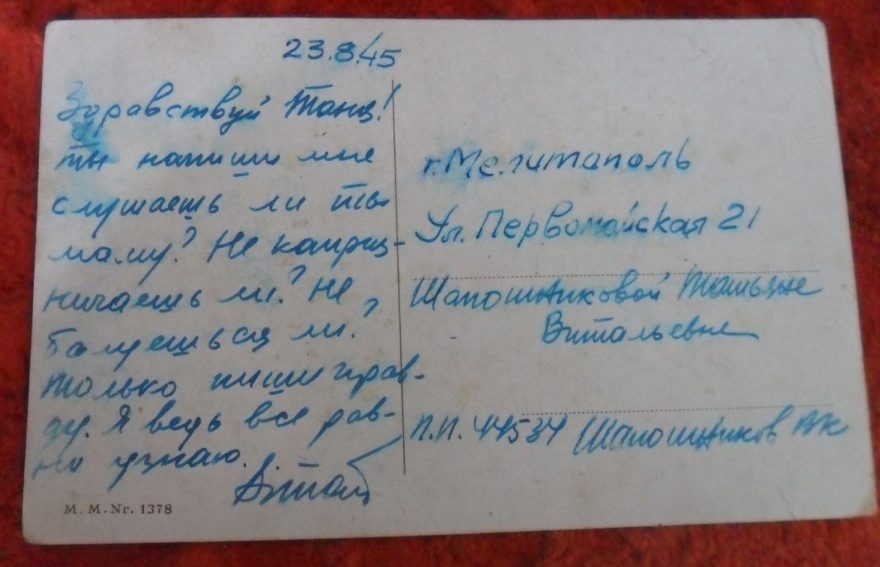 23.8.45
Здравствуй Таня!
ты напиши мне
слушаешь ли ты
маму? Не каприз-
ничаешь ли? Не
балуешься ли?
Только пиши прав-
ду. Я ведь все рав-
но узнаю.
M. M. Nr. 1378
г. Мелитополь
Ул. Первомайская 21
Шапошниковой Татьяне
Витальевне
П.П. 44534 Шапошников